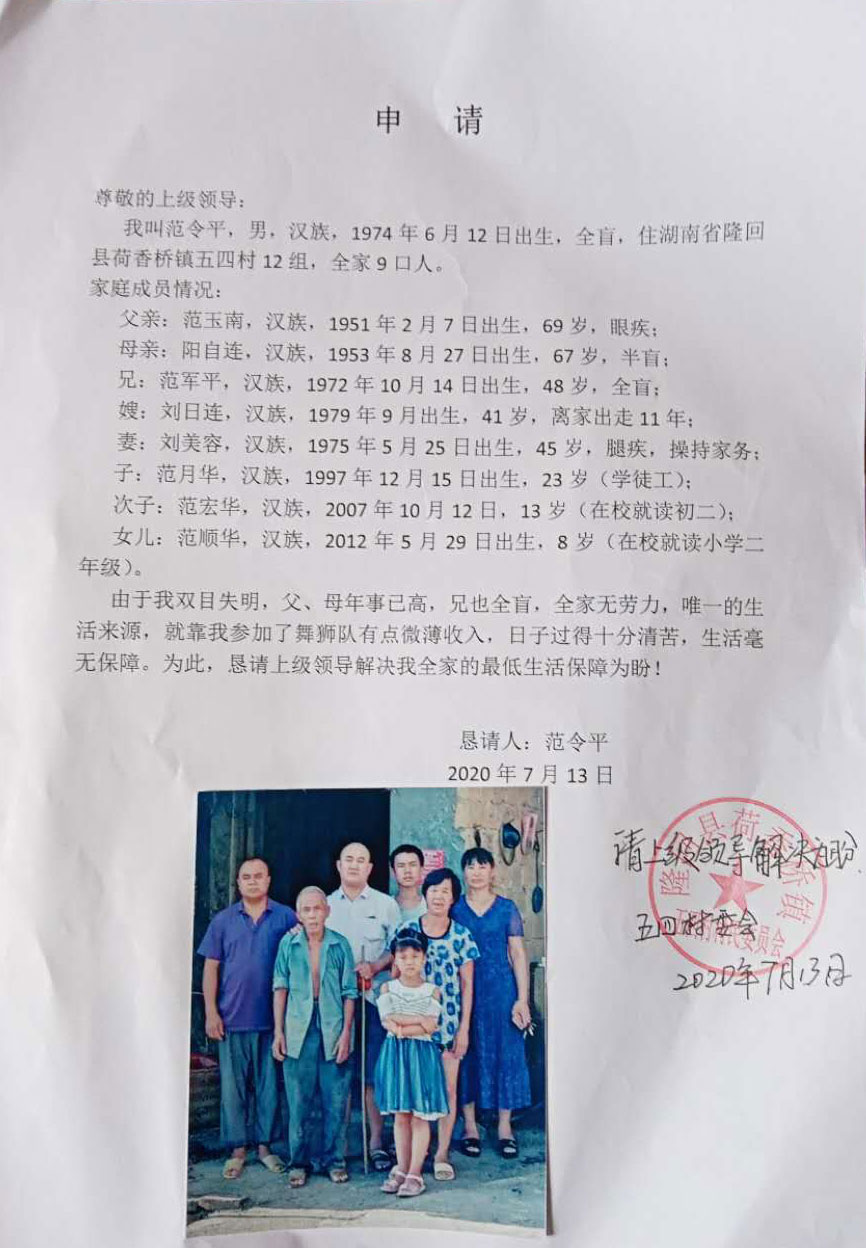 申 请
尊敬的上级领导：
我叫范令平，男，汉族，1974 年 6 月 12 日出生，全盲，住湖南省隆回
县荷香桥镇五四村 12 组，全家 9 口人。
家庭成员情况：
父亲：范玉南，汉族，1951 年 2 月 7 日出生，69 岁，眼疾；
母亲：阳自连，汉族，1953 年 8 月 27 日出生，67 岁，半盲；
兄：范军平，汉族，1972 年 10 月 14 日出生，48 岁，全盲；
嫂：刘日连，汉族，1979 年 9 月出生，41 岁，离家出走 11 年；
妻：刘美容，汉族，1975 年 5 月 25 日出生，45 岁，腿疾，操持家务；
子：范月华，汉族，1997 年 12 月 15 日出生，23 岁（学徒工）；
次子：范宏华，汉族，2007 年 10 月 12 日，13 岁（在校就读初二）；
女儿：范顺华，汉族，2012 年 5 月 29 日出生，8 岁（在校就读小学二
年级）。
由于我双目失明，父、母年事已高，兄也全盲，全家无劳力，唯一的生
活来源，就靠我参加了舞狮队有点微薄收入，日子过得十分清苦，生活毫
无保障。为此，恳请上级领导解决我全家的最低生活保障为盼！
恳请人：范令平
2020 年 7 月 13 日
请上级领导解决为盼.
五四村委会
2020年7月13日
隆 县荷 桥镇
委员会